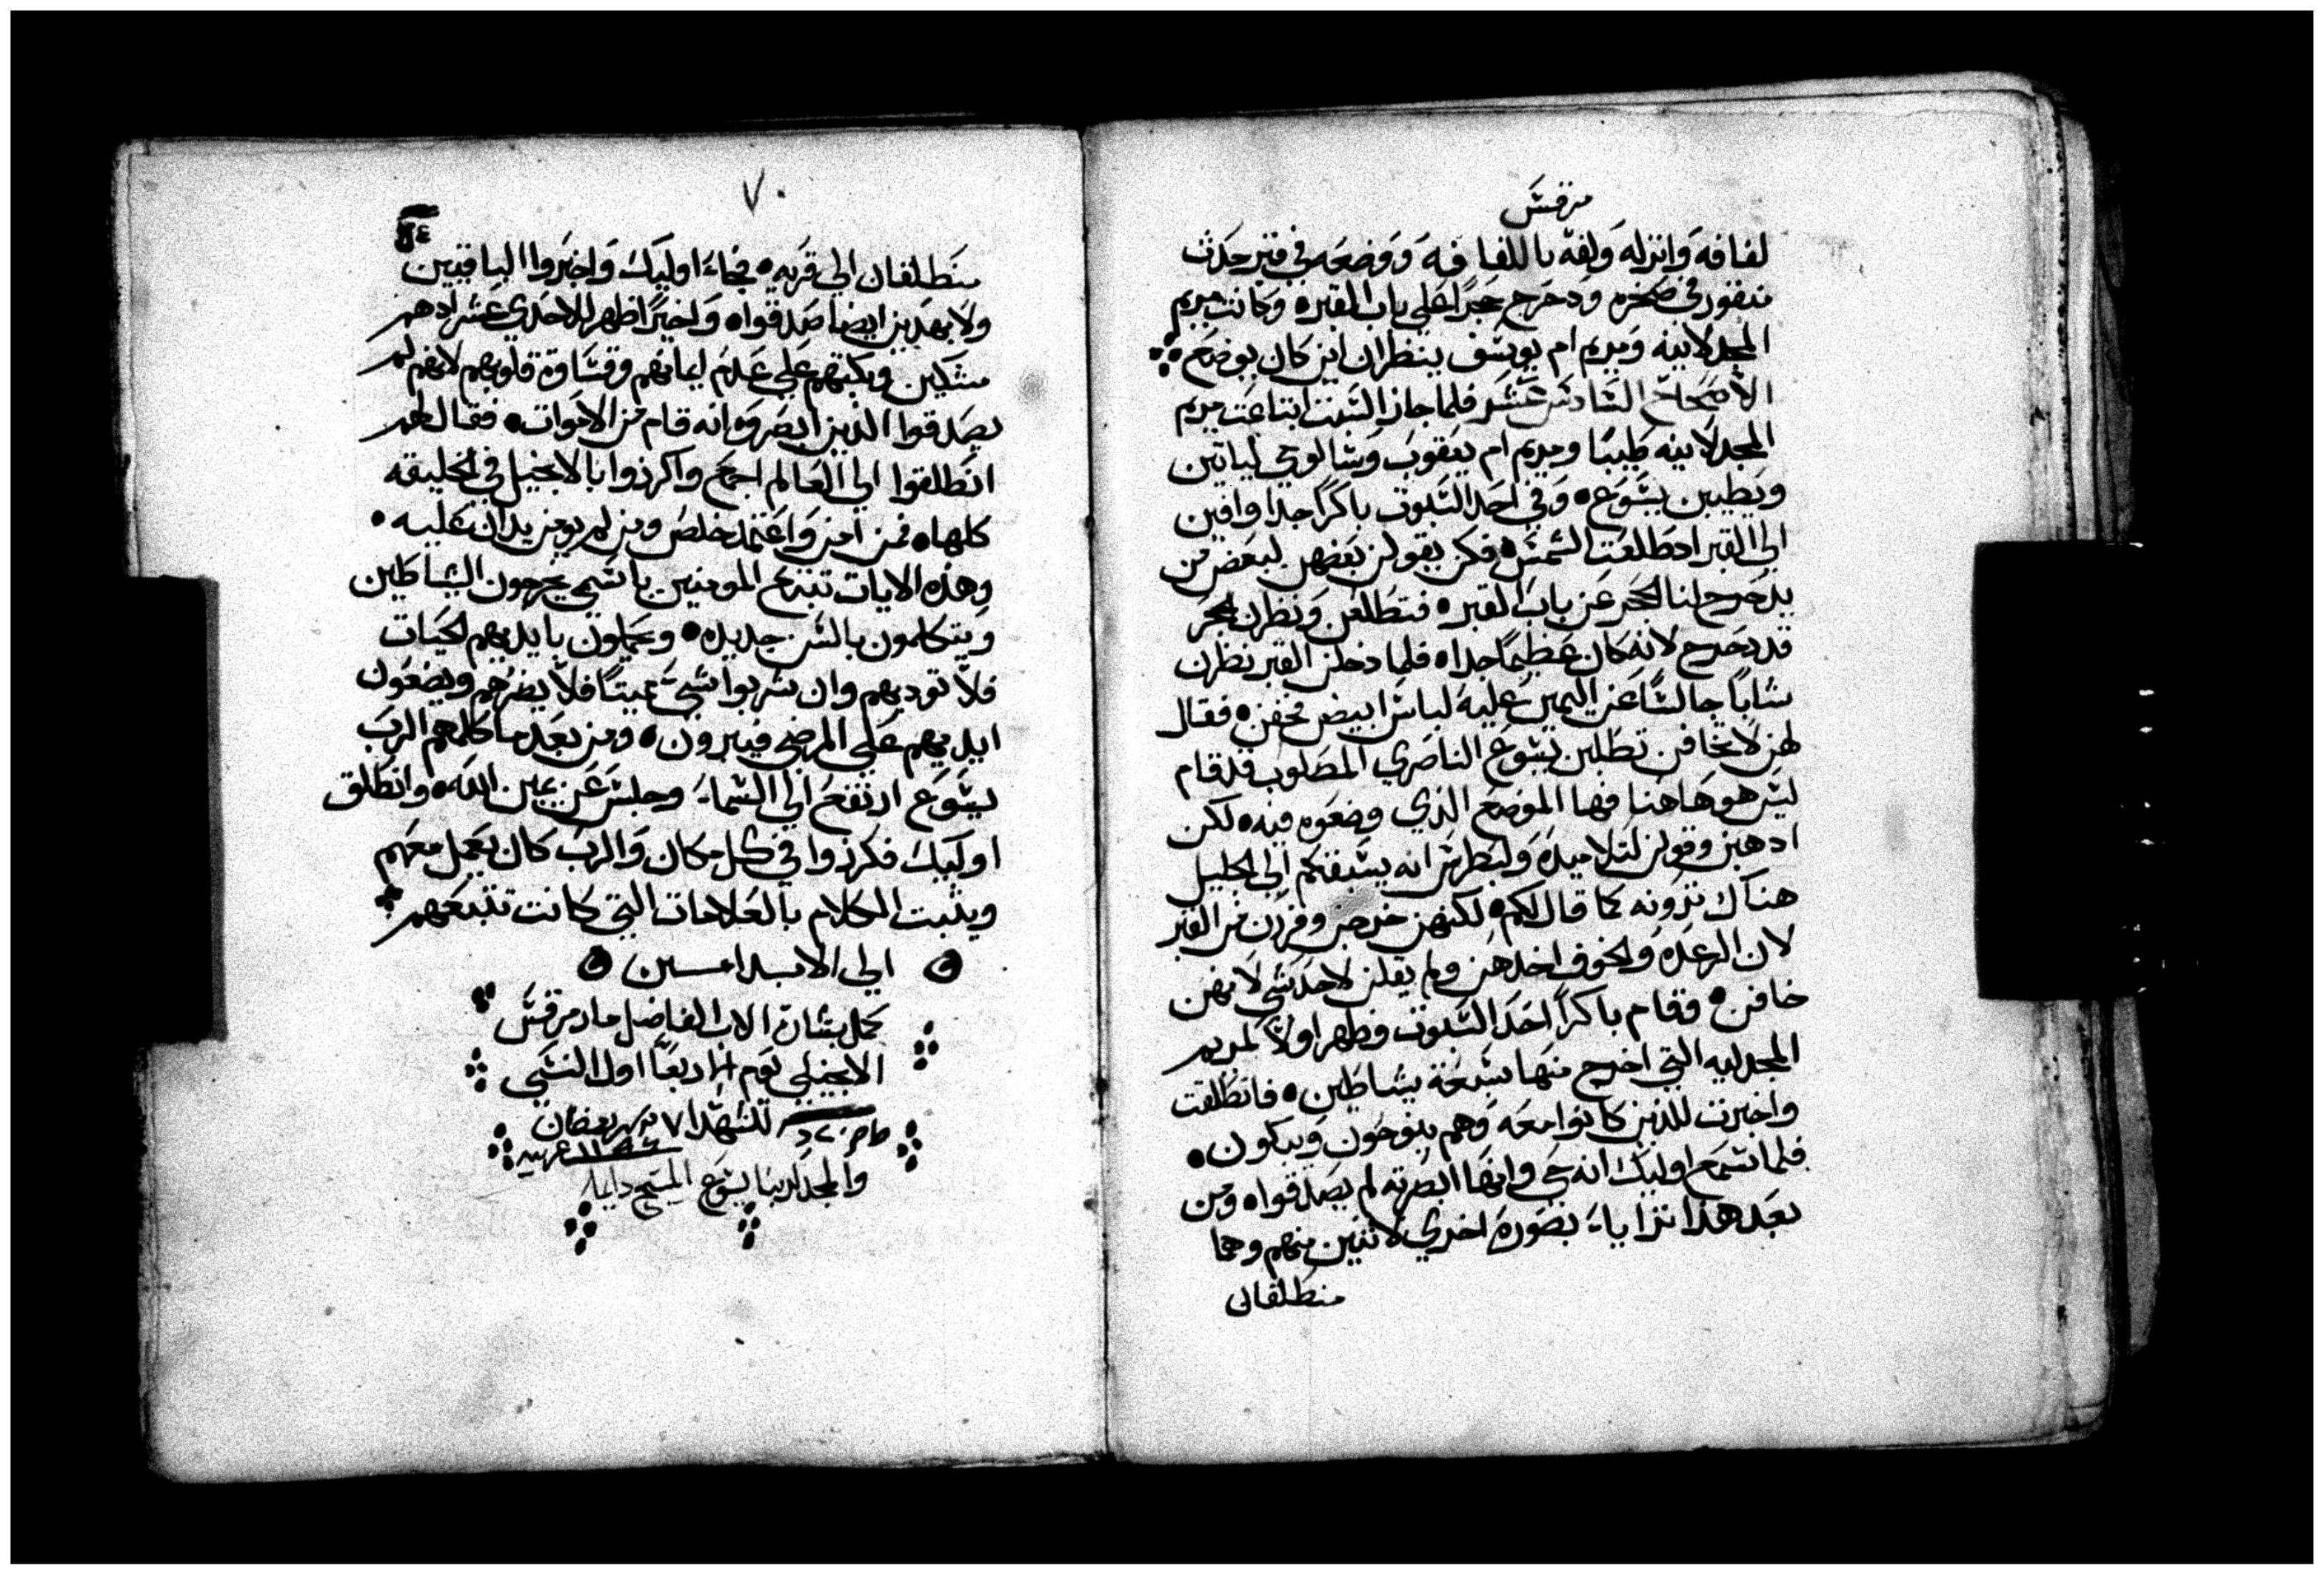 مرقس
لفافه وانزله ولفه باللفافه ووضعه في قبر حدث
منقور في صخره ودحرج حجرًا علي باب المقبره وكانت مريم
المجدلانيه ومريم ام يوسف ينظران اين كان يوضع
الاصحاح السادس عشر فلما جاز السبت ابتاعت مريم
المجدلانيه طيبًا ومريم ام يعقوب وسالومي لياتين
ويطيبن يسوع • وفي احد السبوت باكرًا جدا وافين
الي القبر اد طلعت الشمس • فكن يقولن بعضهن لبعض من
يدحرج لنا الحجر عن باب القبر • فتطلعن ونظرن الحجر
قد دحرج لانه كان عظيمًا جدا • فلما دخلن القبر نظرن
شابًا جالسًا عن اليمين عليه لباس ابيض فخفن • فقال
لهن لا تخافن تطلبن يسوع الناصري المصلوب قد قام
ليس هو هاهنا فها الموضع الذي وضعوه فيه • لكن
ادهبن وقولن لتلاميده ولبطرس انه يسبقكم الي الجليل
هناك ترونه كما قال لكم • لكنهن خرجن وفررن من القبر
لان الرعده والخوف اخدهن ولم يقلن لاحد شي لانهن
خافن • وقام باكرًا احد السبوت وظهر اولًا لمريم
المجدليه التي اخرج منها سبعة شياطين • فانطلقت
واخبرت للذين كانوا معه وهم ينوحون ويبكون •
فلما سمع اوليك انه حي وانها ابصرته لم يصدقوا • ومن
بعد هذا تزايا بصورة اخري لاثنين منهم وهما
منطلقان
٧٠
منطلقان الي قريه • فجاء اوليك واخبروا الباقيين
ولا بهدين ايضا صدقوا • واخيرًا ظهر للاحدي عشر اد هم
متكين وبكتهم علي عدم ايمانهم وقساوة قلوبهم لانهم لم
يصدقوا الذين ابصروه انه قام من الاموات • فقال لهم
انطلقوا الي العالم اجمع واكرزوا بالانجيل في الخليقه
كلها • فمن امن واعتمد خلص ومن لم يومن يدان عليه •
وهذه الايات تتبع المومنين باسمي يخرجون الشياطين
ويتكلمون بالسن جديده • ويحملون بايديهم الحيات
فلا توديهم وان شربوا شي مميتًا فلا يضرهم ويضعون
ايديهم علي المرضي فيبرون • ومن بعد ما كلمهم الرب
يسوع ارتفع الي السماء وجلس عن يمين الله • وانطلق
اوليك فكرزوا في كل مكان والرب كان يعمل معهم
ويثبت الكلام بالعلامات التي كانت تتبعهم
الي الابد امين
كمل بشارة الاب الفاضل مار مرقس
الانجيلي يوم اربعا اول النسي
للشهدا ٧ شهر رمضان
والمجد لربنا يسوع المسيح دايما